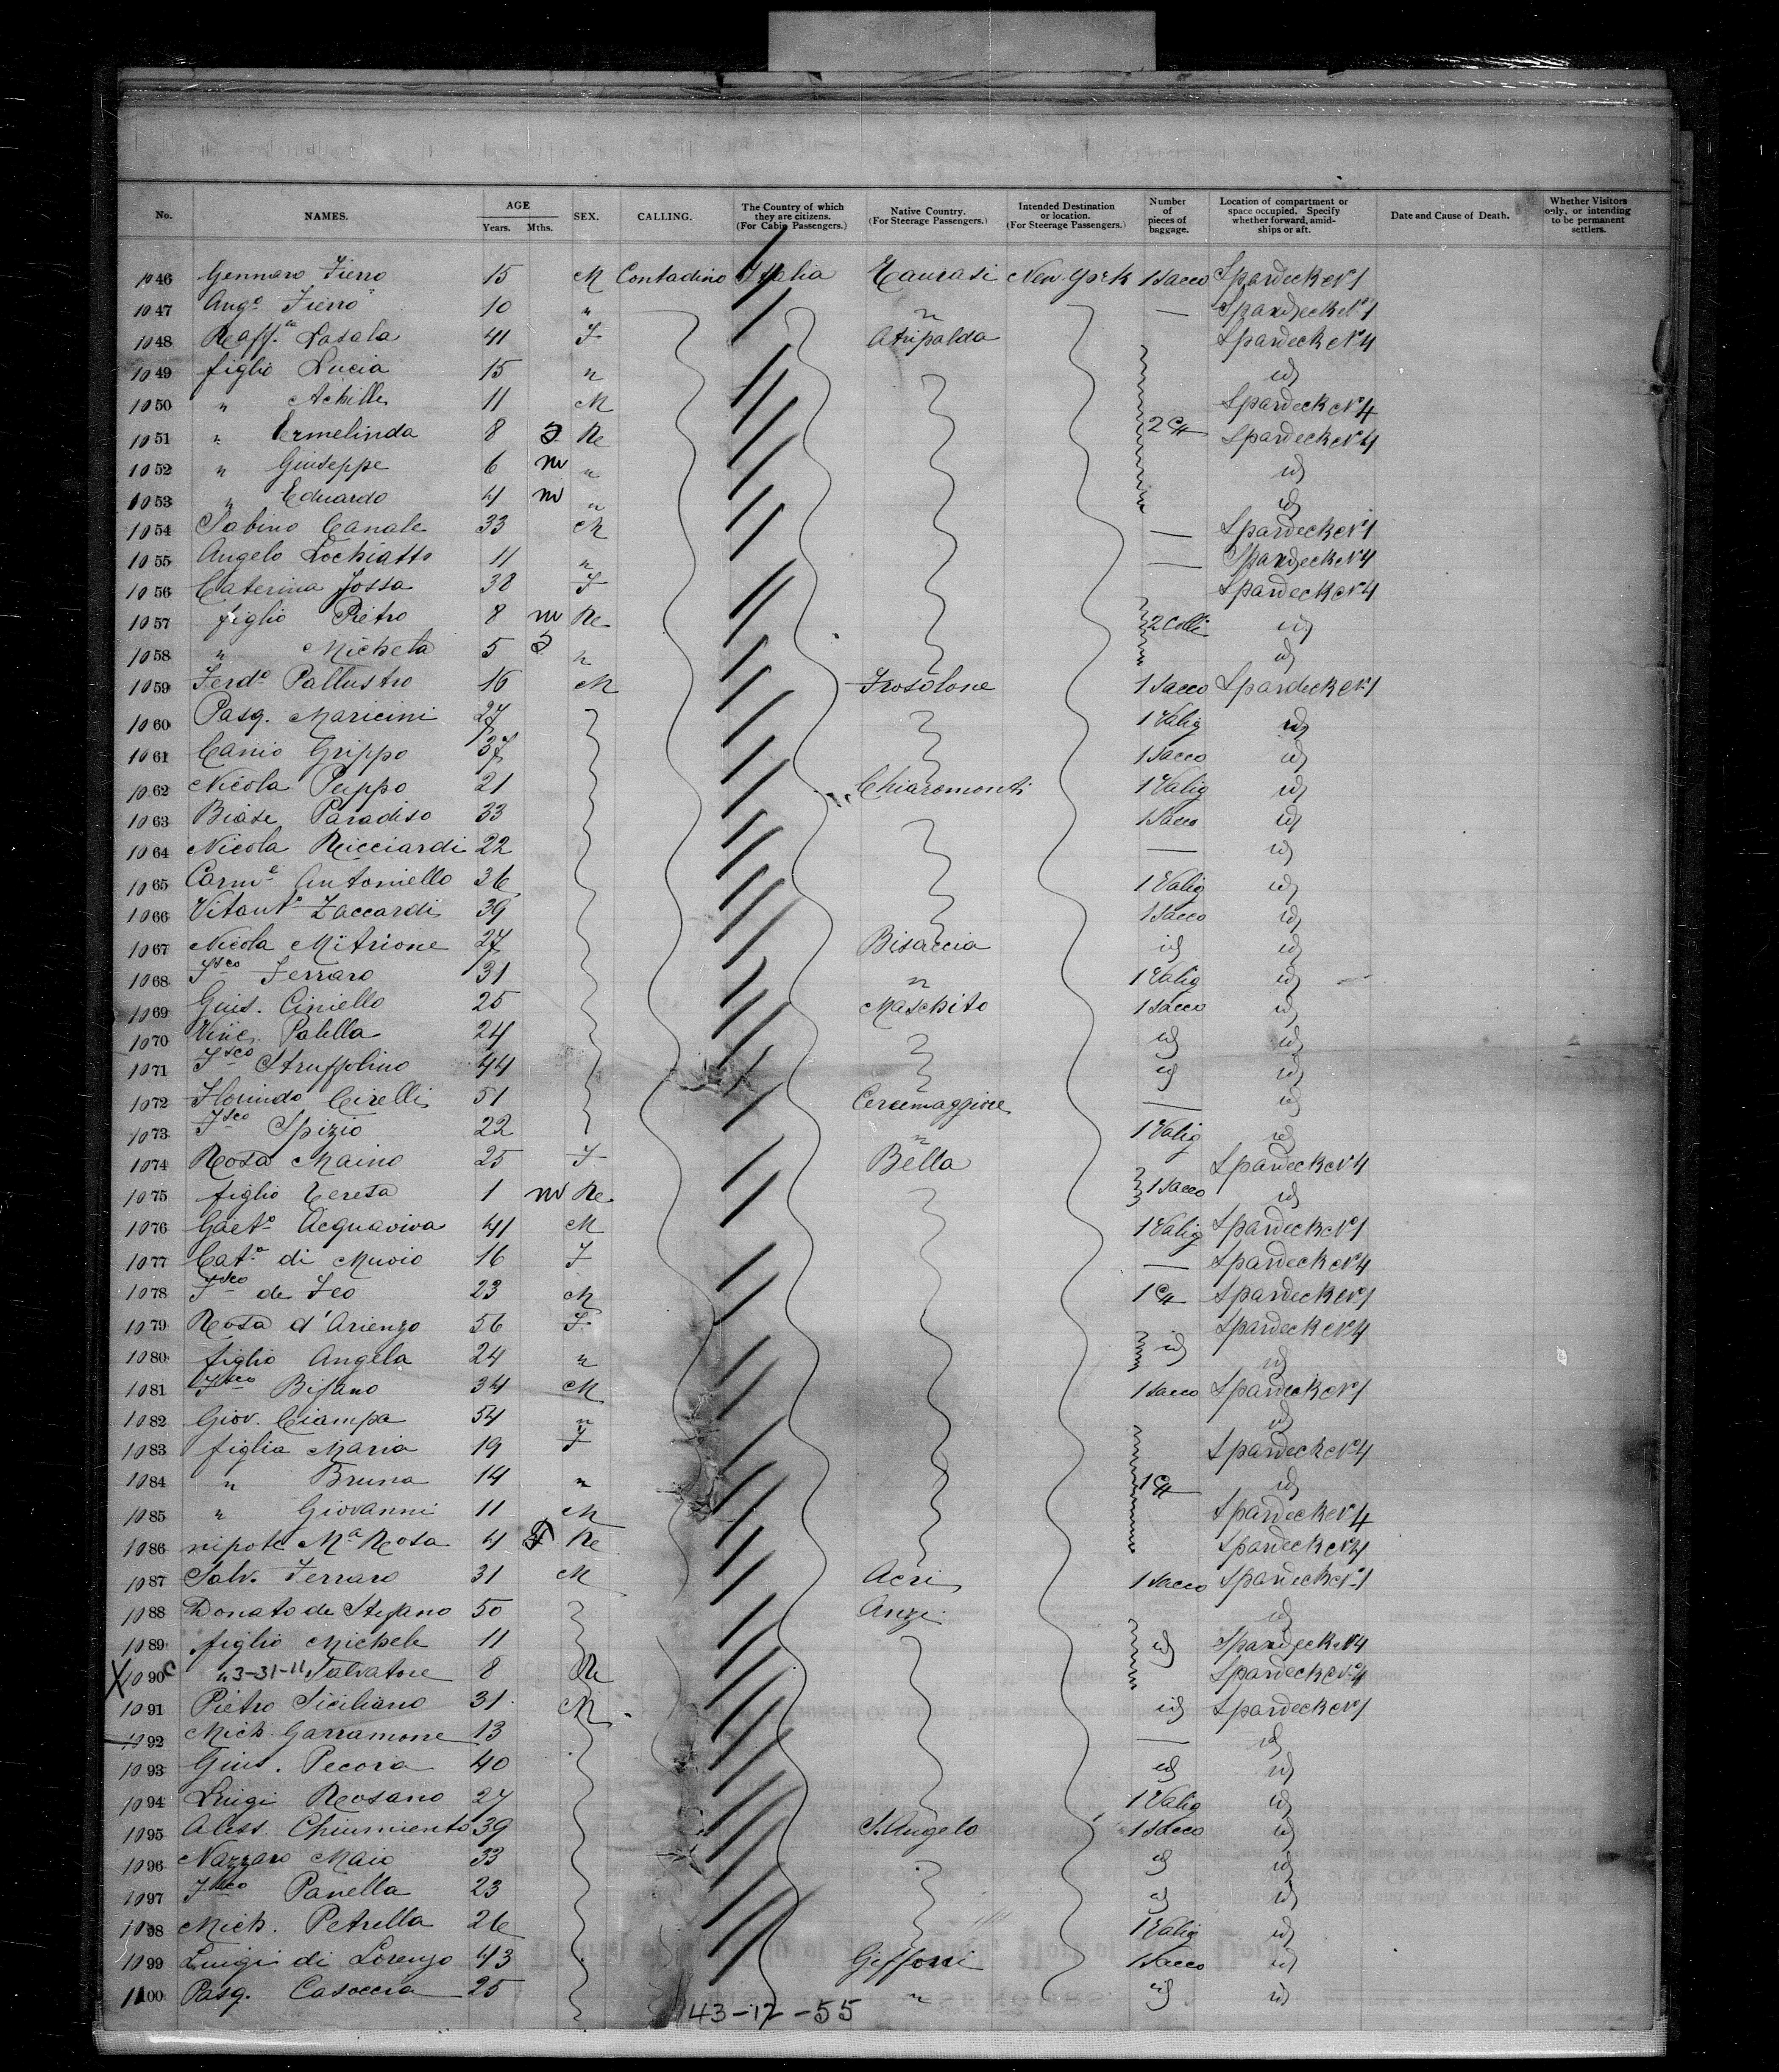 No. NAMES. AGE Years. Mths. SEX. CALLING. The Country of which they are citizens. (For Cabin Passengers.) Native Country. (For Steerage Passengers.) Intended Destination or location. (For Steerage Passengers.) Number of pieces of baggage. Location of compartment or space occupied. Specify whether forward, amidships or aft. Date and Cause of Death. Whether Visitors only, or intending to be permanent settlers.
1046 Gennaro Fierro 15 M Contadino Italia Taurasi New-York 1 Sacco Spardeck N°1
1047 Ang° Fierro 10 " " — Spardeck N°1
1048 Raff.la Lasala 41 F Atripalda Spardeck N°4
1049 figlio Lucia 15 " id
1050 " Achille 11 M Spardeck N°4
1051 " Ermelinda 8 Re 2 C Spardeck N°4
1052 " Giuseppe 6 m " id
1053 " Eduardo 4 m " id
1054 Sabino Canale 33 M — Spardeck N°1
1055 Angelo Lochiatto 11 " — Spardeck N°4
1056 Caterina Jossa 38 F Spardeck N°4
1057 figlio Pietro 8 m Re 2 Colli id
1058 " Michela 5 " id
1059 Ferd° Pallustro 16 M Frosolone 1 Sacco Spardeck N°1
1060 Pasq. Maricini 27 1 Valig id
1061 Canio Grippo 37 1 Sacco id
1062 Nicola Puppo 21 Chiaromonti 1 Valig id
1063 Biase Paradiso 33 1 Sacco id
1064 Nicola Ricciardi 22 — id
1065 Carm.e Antoniello 36 1 Valig id
1066 Vitant° Zaccardi 39 1 Sacco id
1067 Nicola Mitrione 27 Bisaccia id id
1068 Fsco Ferraro 31 " 1 Valig id
1069 Gius. Ciniello 25 Maschito 1 Sacco id
1070 Vinc. Palella 24 id id
1071 Fsco Struffolino 44 id id
1072 Florindo Cirelli 51 Cercemaggiore — id
1073 Fsco Spizio 22 " 1 Valig id
1074 Rosa Maino 25 F Bella Spardeck N°4
1075 figlio Teresa 1 m Re 1 Sacco id
1076 Gaet° Acquaviva 41 M 1 Valig Spardeck N°1
1077 Cat.a di Muoio 16 F — Spardeck N°4
1078 Fsco de Feo 23 M 1 C Spardeck N°1
1079 Rosa d'Arienzo 56 F Spardeck N°4
1080 figlio Angela 24 " id id
1081 Fsco Bifano 34 M 1 Sacco Spardeck N°1
1082 Giov. Ciampa 54 " id
1083 figlia Maria 19 F Spardeck N°4
1084 " Bruna 14 " 1 C id
1085 " Giovanni 11 M Spardeck N°4
1086 nipote Ma Rosa 4 Re Spardeck N°4
1087 Salv. Ferraro 31 M Acri 1 Sacco Spardeck N°1
1088 Donato de Stefano 50 Anzi id
1089 figlio Michele 11 id Spardeck N°4
X 1090 c " 3-31-11 Salvatore 8 Re Spardeck N°4
1091 Pietro Siciliano 31 M id Spardeck N°1
1092 Mich Garramone 13 — id
1093 Gius. Pecora 40 id id
1094 Luigi Rosano 27 1 Valig id
1095 Aless. Chiumiento 39 S. Angelo 1 Sacco id
1096 Nazzaro Maio 33 id id
1097 Fsco Panella 23 id id
1098 Mich. Petrella 26 1 Valig id
1099 Luigi di Lorenzo 43 Giffoni 1 Sacco id
1100 Pasq. Casoccia 25 " id id
43-12-55